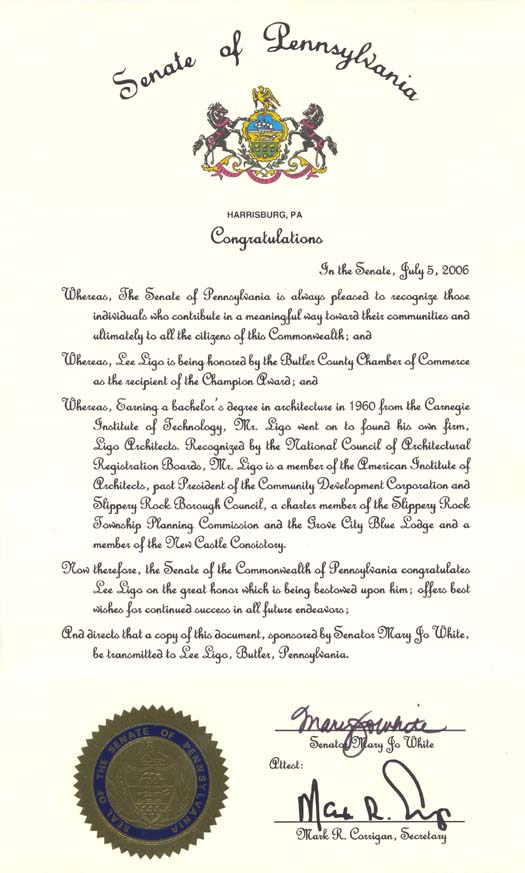 Senate of Pennsylvania
HARRISBURG, PA
Congratulations
In the Senate, July 5, 2006
Whereas, The Senate of Pennsylvania is always pleased to recognize those
individuals who contribute in a meaningful way toward their communities and
ultimately to all the citizens of this Commonwealth; and
Whereas, Lee Ligo is being honored by the Butler County Chamber of Commerce
as the recipient of the Champion Award; and
Whereas, Earning a bachelor's degree in architecture in 1960 from the Carnegie
Institute of Technology, Mr. Ligo went on to found his own firm,
Ligo Architects. Recognized by the National Council of Architectural
Registration Boards, Mr. Ligo is a member of the American Institute of
Architects, past President of the Community Development Corporation and
Slippery Rock Borough Council, a charter member of the Slippery Rock
Township Planning Commission and the Grove City Blue Lodge and a
member of the New Castle Consistory.
Now therefore, the Senate of the Commonwealth of Pennsylvania congratulates
Lee Ligo on the great honor which is being bestowed upon him; offers best
wishes for continued success in all future endeavors;
And directs that a copy of this document, sponsored by Senator Mary Jo White,
be transmitted to Lee Ligo, Butler, Pennsylvania.
Mary Jo White
Senator Mary Jo White
Attest:
Mark R.
Mark R. Corrigan, Secretary
SEAL OF THE SENATE OF PENNSYLVANIA